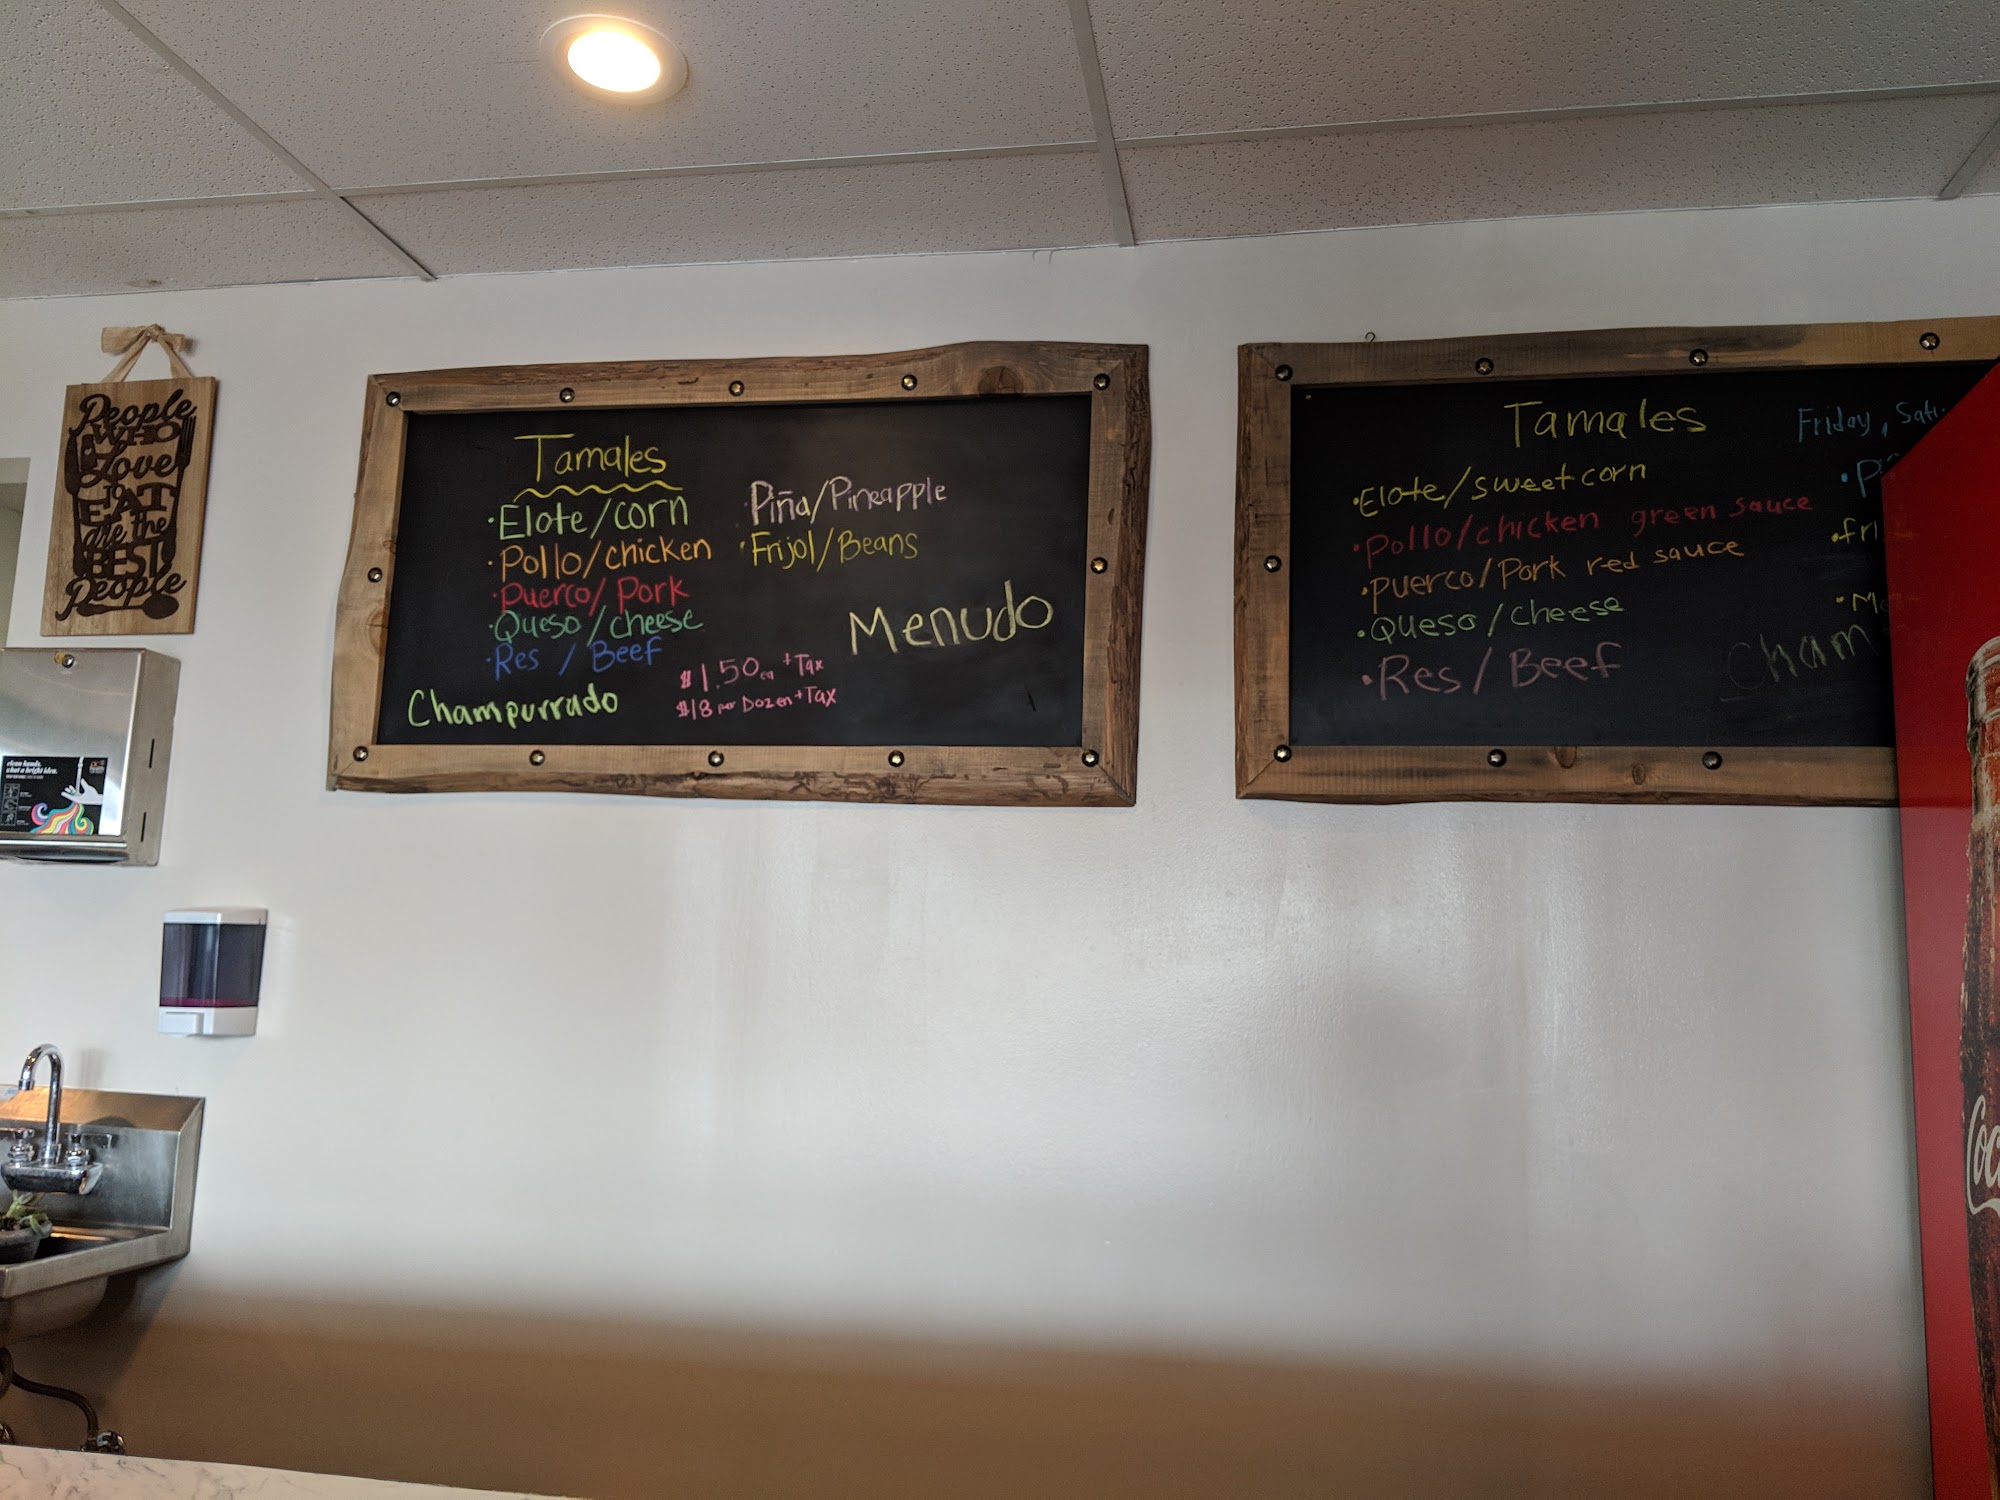 People
WHO
Love
TO
EAT
are the
BEST
People
clean hands.
what a bright idea.
Tamales
· Elote/corn
· Pollo/chicken
· Puerco/Pork
· Queso/cheese
· Res / Beef
Champurrado
· Piña/Pineapple
· Frijol/Beans
Menudo
$1.50 ea + Tax
$18 per Dozen + Tax
Tamales
· Elote/sweet corn
· Pollo/chicken green sauce
· Puerco/Pork red sauce
· Queso/Cheese
· Res/Beef
Friday, Satu
· fri
· Me
Cham
Coc